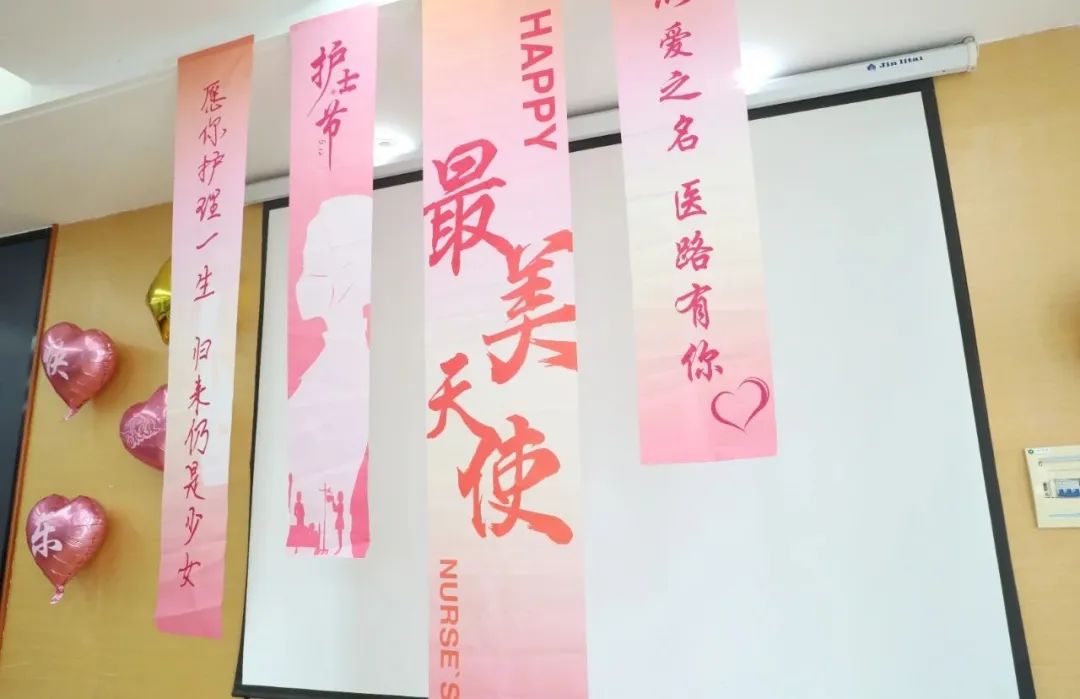 愿你护理一生 归来仍是少女
护士节
5.12
HAPPY
最美天使
NURSE'S
爱之名 医路有你
Jin litai
快
乐